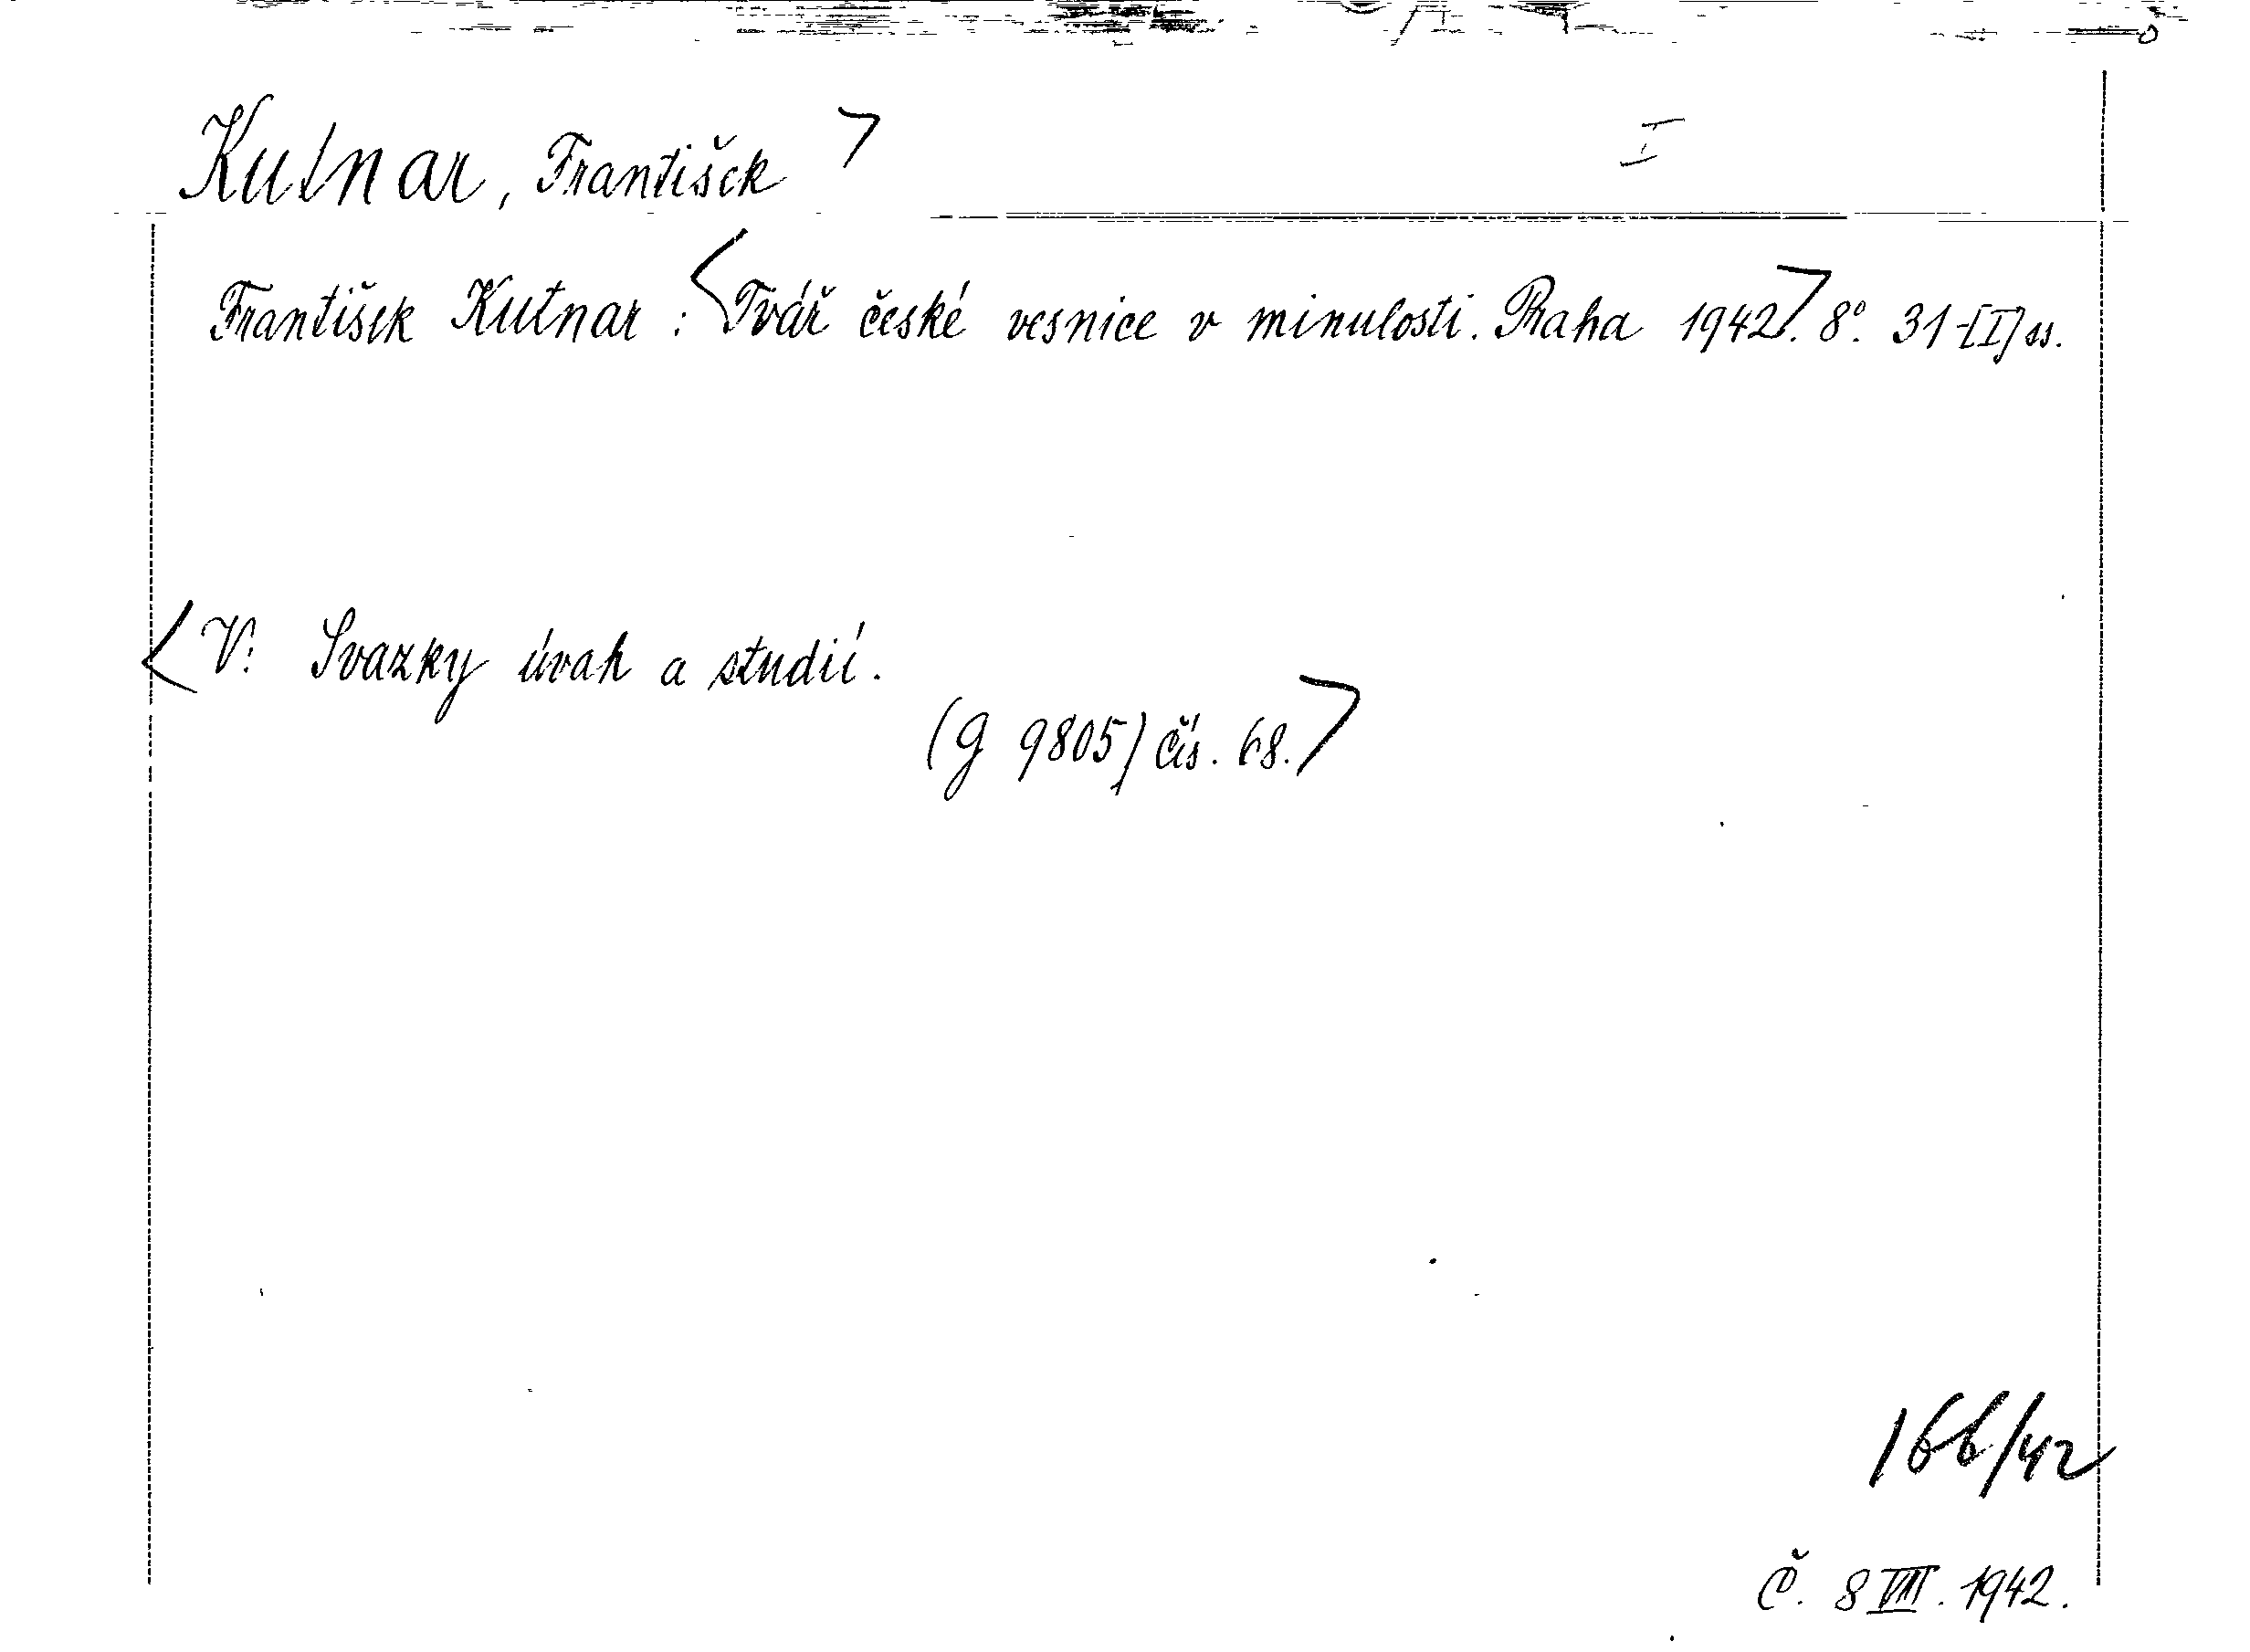 Kutnar, František > I
František Kutnar : <Tvář české vesnice v minulosti. Praha 1942>. 8°. 31-[I] ss.
<V: Svazky úvah a studií.
(G 9805) čís. 68.>
166/42
Č. 8 VIII. 1942.